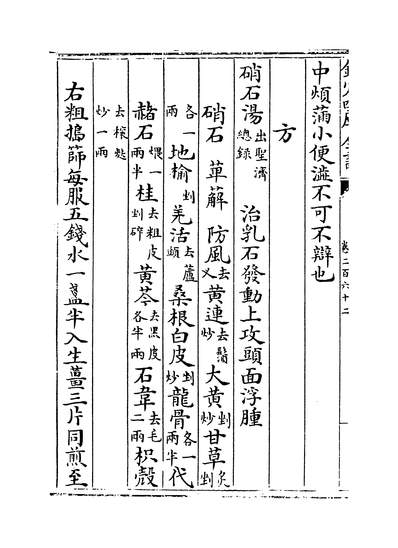 欽定四庫全書
卷二百六十二
中煩滿小便澁不可不辯也
方
硝石湯出聖濟總録 治乳石發動上攻頭面浮腫
硝石 萆薢 防風去叉 黄連去鬚炒 大黄剉炒 甘草炙剉
各一兩 地榆剉 羌活去蘆頭 桑根白皮剉炒 龍骨各一兩半 代
赭石煨一兩半 桂去粗皮剉碎 黄芩去黑皮各半兩 石韋去毛二兩 枳殼
去穰麩炒一兩
右粗搗篩每服五錢水一盞半入生薑三片同煎至